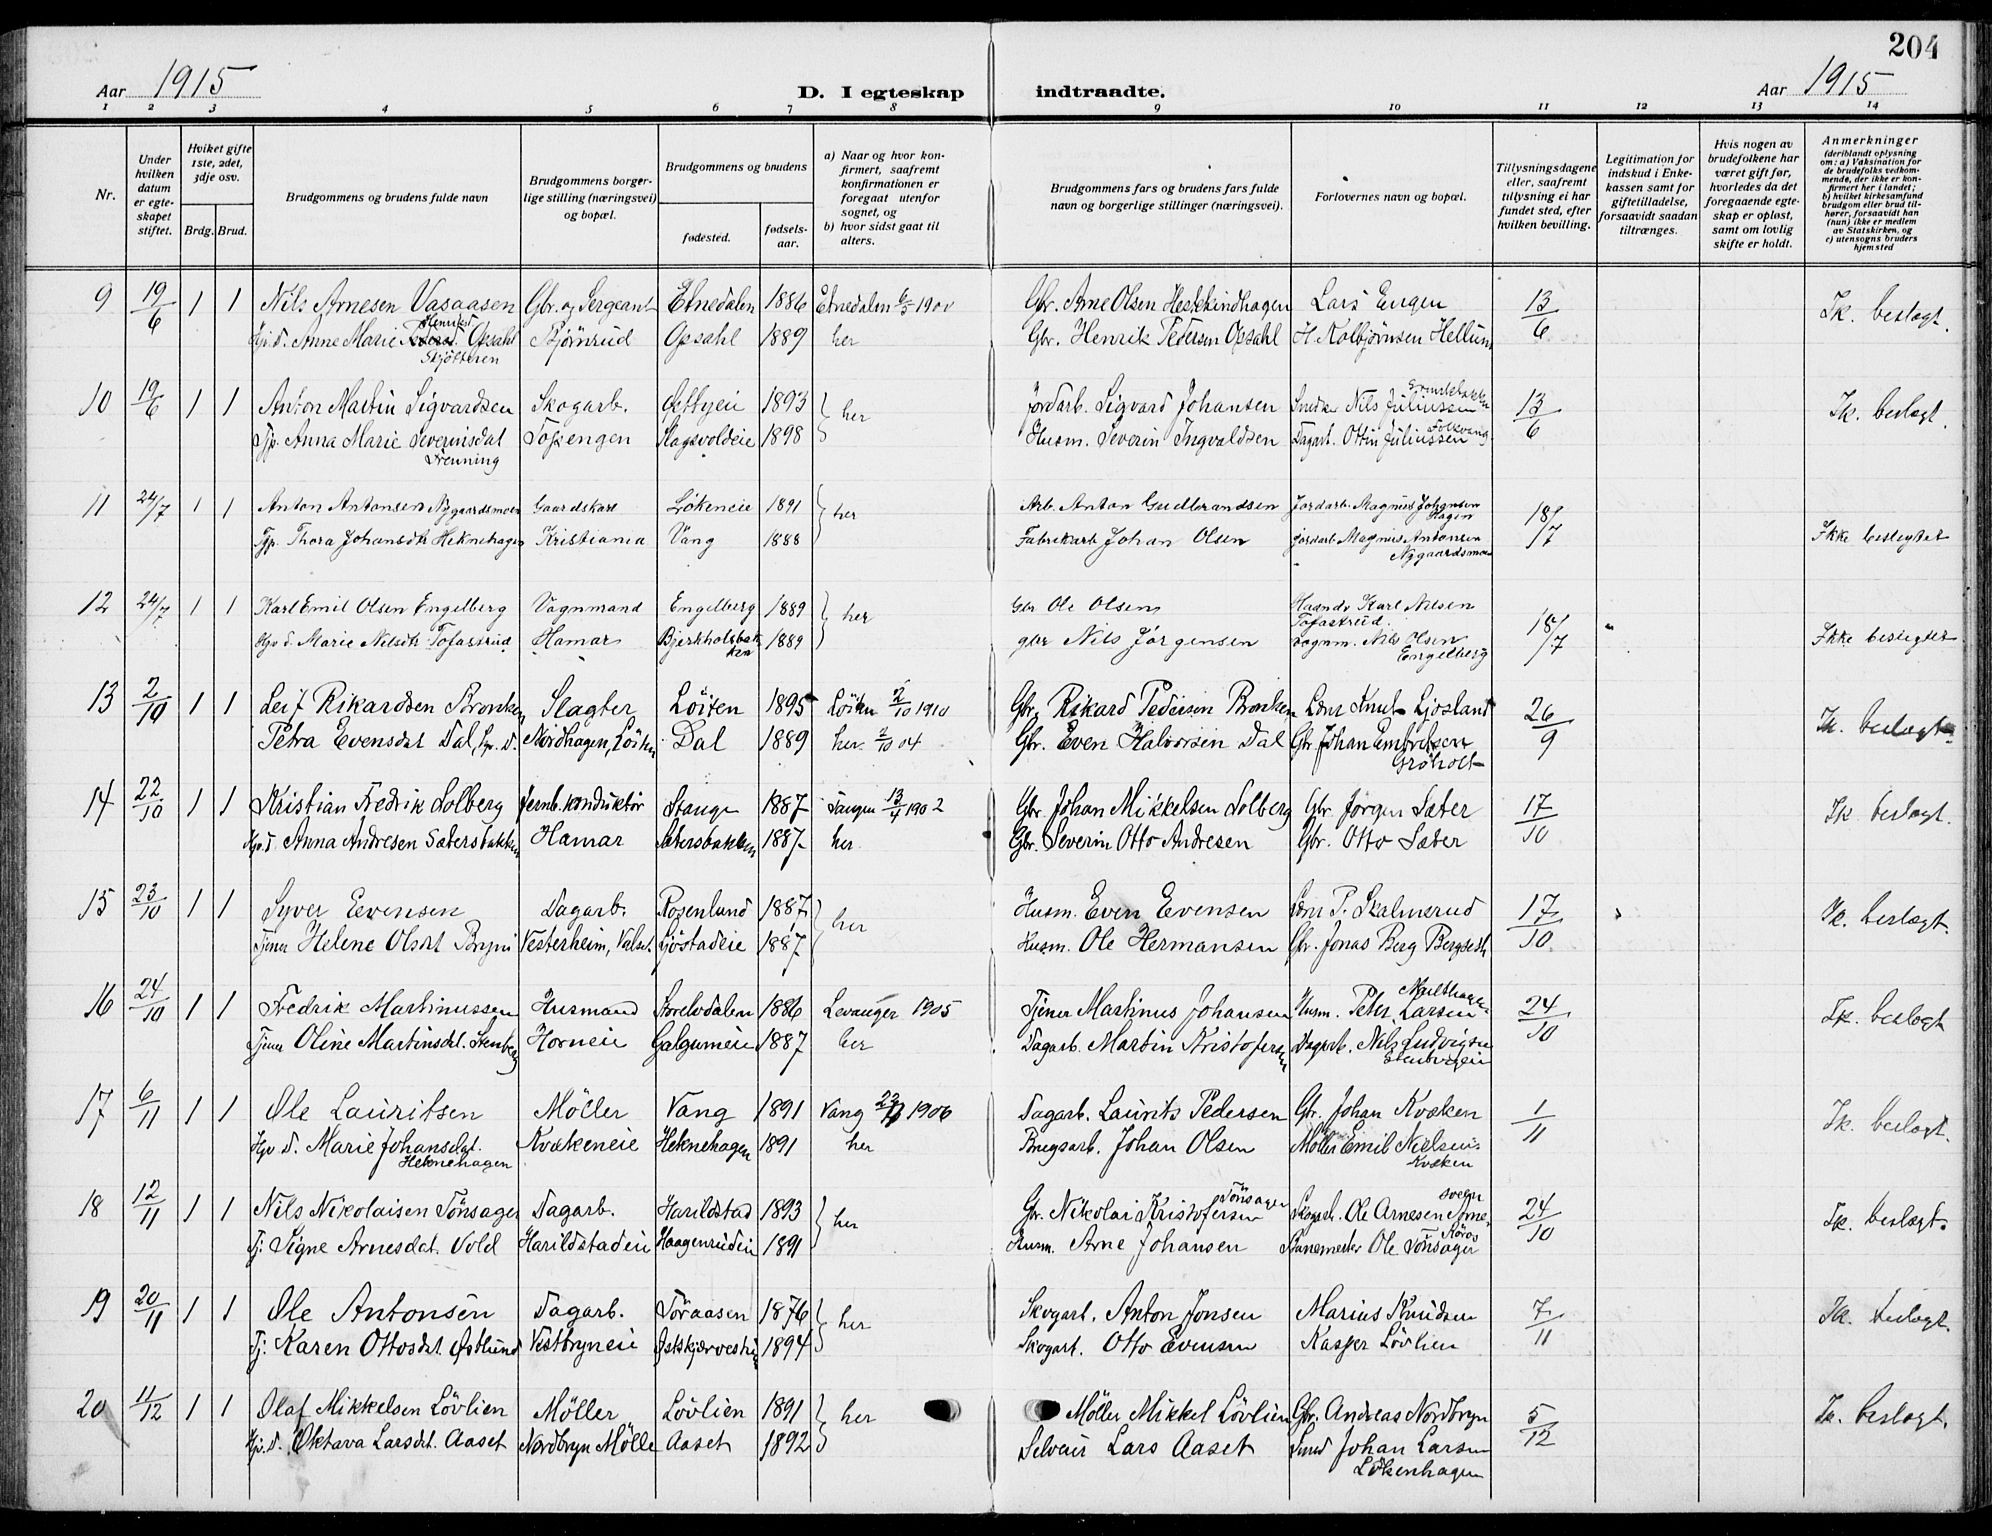 204
Aar 1915 D. I egteskap indtraadte. Aar 1915
1 2 3 4 5 6 7 8 9 10 11 12 13 14
Nr.
Under hvilken datum er egteskapet stiftet.
Hviket gifte 1ste, 2det, 3dje osv.
Brdg. Brud.
Brudgommens og brudens fulde navn
Brudgommens borgerlige stilling (næringsvei) og bopæl.
Brudgommens og brudens
fødested. fødselsaar.
a) Naar og hvor konfirmert, saafremt konfirmationen er foregaat utenfor sognet, og
b) hvor sidst gaat til alters.
Brudgommens fars og brudens fars fulde navn og borgerlige stillinger (næringsvei).
Forlovernes navn og bopæl.
Tillysningsdagene eller, saafremt tillysning ei har fundet sted, efter hvilken bevilling.
Legitimation for indskud i Enkekassen samt for giftetilladelse, forsaavidt saadan tiltrænges.
Hvis nogen av brudefolkene har været gift før, hvorledes da det foregaaende egteskap er opløst, samt om lovlig skifte er holdt.
Anmerkninger (deriblandt oplysning om: a) Vaksination for de brudefolks vedkommende, der ikke er konfirmert her i landet; b) hvilket kirkesamfund brudgom eller brud tilhører, forsaavidt han (hun) ikke er medlem av Statskirken, og c) utensogns bruders hjemsted
9 19/6 1 1 Nils Arnesen Vasaasen Gbr. og Sergeant Etnedalen 1886 Etnedalen Gbr. Arne Olsen Lars Engen 13/6 Ik. beslægt.
Hjv. D. Anne Marie Henriksd. Opsahl Skjölteren Bjørnrud Opsahl 1889 her Gbr. Henrik Pedersen Opsahl H. Kolbjørnsen Hellum
10 19/6 1 1 Anton Martin Sigvardsen Skogarb. 1893 her Jordarb. Sigvard Johansen Snedker Nils Juliussen 13/6 Ik. beslægt.
Tjp. Anna Marie Severinsdat Frenning Tofsengen Slagsvoldeie 1898 Husm. Severin Ingvaldsen Dagarb. Ottin Juliussen Solvang
11 24/7 1 1 Anton Antonsen Nygaardsmoen Gaardskarl Lökeneie 1891 her Arb. Anton Gudbrandsen Jordarb. Magnus Johansen Hagen 18/7 Ikke beslegtet
Tjp. Thora Johansdtr Heknehagen Kristiania Vang 1888 Fabrikarb Johan Olsen jordarb Magnus Antonsen Nygaardsmoen
12 24/7 1 1 Karl Emil Olsen Engelberg Vognmand Engelberg 1889 her Gbr Ole Olsen Haandv Karl Nilsen Tofastrud. 18/7 Ikke beslegtet
Hjv D. Marie Nilsdtr Tofastrud Hamar Bjerkholsbakken 1889 gbr Nils Jörgensen vognm. Nils Olsen Engelberg
13 2/10 1 1 Leif Rikardsen Bronken Slagter Löiten 1895 Löiten 2/10 1910 Gbr. Rikard Pedersen Bronken Lær Knut Ljosland 26/9 Ik. beslægt.
Petra Evensdat Dal, Hjv. D. Nordhagen, Löiten Dal 1889 her 04 Gbr. Even Halvorsen Dal Gbr Johan Embretsen Gröholt
14 22/10 1 1 Kristian Fredrik Solberg Jernb. konduktör Stange 1887 Tangen 13/4 1902 Gbr Johan Mikkelsen Solberg Gbr. Jörgen Sæter 17/10 Ik. beslægt.
Hjv. D. Anna Andresen Sætersbakken Hamar Sætersbakken 1887 her Gbr. Severin Otto Andresen Gbr. Otto Sæter
15 23/10 1 1 Syver Evensen Dagarb. Rosenlund 1887 her Husm. Even Evensen Lær P. Skalmerud 17/10 Ik. beslægt.
Tjener Helene Olsdt Bryni Vesterheim, Valset Ljöstadeie 1887 Husm. Ole Hermansen Gbr. Jonas Berg Bergseth
16 24/10 1 1 Fredrik Martinussen Husmand Storelvdalen 1886 Levanger 1905 Tjener Martinus Johansen Husm. Peter Larsen 24/10 Ik. beslægt
Tjener Oline Martinsdt. Stenberg Horneie Galgumeie 1887 her Dagarb. Martin Kristofersen Dagarb. Nils Ludvigsen
17 6/11 1 1 Ole Lauritsen Möller Vang 1891 Vang 1906 Dagarb. Laurits Pedersen Gbr. Johan Kvæken 1/11 Ik. beslægt.
Hjv D. Marie Johansdat. Heknehagen Kvækeneie Heknehagen 1891 her Brugsarb. Johan Olsen Möller Emil Nielsen Kvæken
18 12/11 1 1 Nils Nikolaisen Tönsager Dagarb. Harildstad 1893 her Gbr. Nikolai Kristofersen Tönsagen Skogarb. Ole Arnesen 24/10 Ik. beslægt.
Tj. Signe Arnesdat. Vold Harildstadeie Haagenrudeie 1891 Husm. Arne Johansen Banemester Ole Tönsager Röros
19 20/11 1 1 Ole Antonsen Dagarb. Toraasen 1876 her Skogarb. Anton Jonsen Marius Knudsen 7/11 Ik. beslægt.
Tj. Karen Ottosdt. Østlund Vestbryneie 1894 Skogarb. Otto Evensen Kasper Lövlien
20 11/12 1 1 Olaf Mikkelsen Lövlien Möller Lövlien 1891 her Möller Mikkel Lövlien Gbr. Andreas Nordbryn 5/12 Ik. beslægt.
Hjv. D. Oktava Larsdt. Aaset Nordbryn Mölle Aaset 1892 Selveier Lars Aaset Smed Johan Larsen Lökenhagen